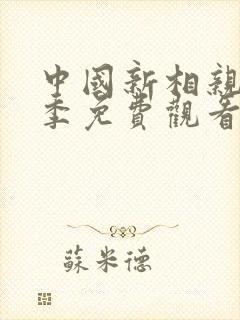 中國新相親
季免費觀看
蘇米德